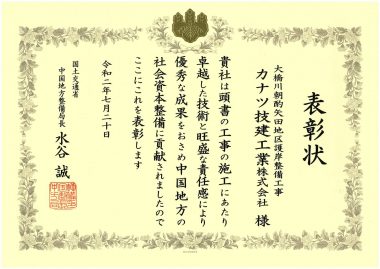 表彰状
大橋川朝酌矢田地区護岸整備工事
カナツ技建工業株式会社 様
貴社は頭書の工事の施工にあたり
卓越した技術と旺盛な責任感により
優秀な成果をおさめ中国地方の
社会資本整備に貢献されましたので
ここにこれを表彰します
令和二年七月二十日
国土交通省
中国地方整備局長 水谷 誠